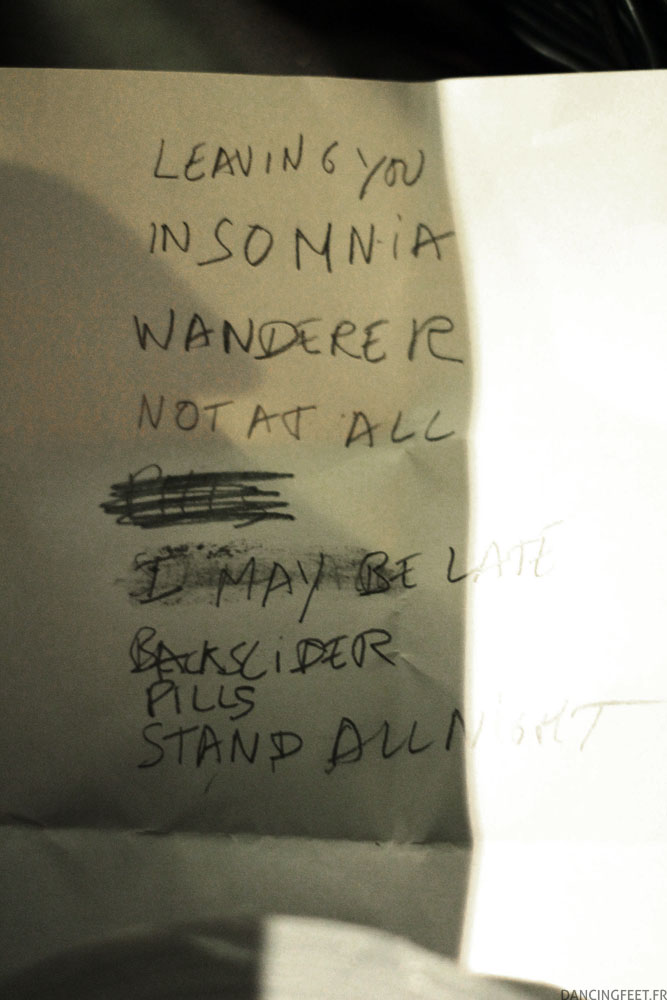 LEAVING YOU
INSOMNiA
WANDERER
NOT AT ALL
I MAY BE LATE
BACKSLiDER
PILLS
STAND ALL NIGHT
DANCINGFEET.FR